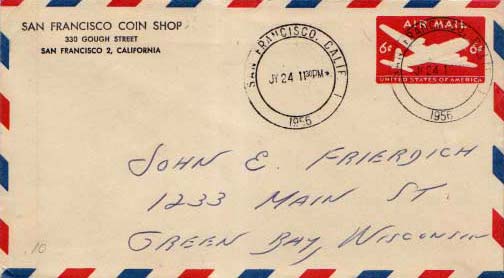 SAN FRANCISCO COIN SHOP
330 GOUGH STREET
SAN FRANCISCO 2, CALIFORNIA
SAN FRANCISCO, CALIF. 1
JY 24 1130PM*
1956
AIR MAIL
6¢ 6¢
UNITED STATES OF AMERICA
FRANCISCO, CALIF.
JY 24 1
1956
JOHN E. FRIERDICH
1233 MAIN ST.
GREEN BAY, WISCONSIN
.10